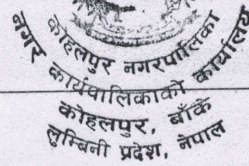 कोहलपुर नगरपालिका
नगर कार्यपालिकाको कार्यालय
कोहलपुर, बाँके
लुम्बिनी प्रदेश, नेपाल